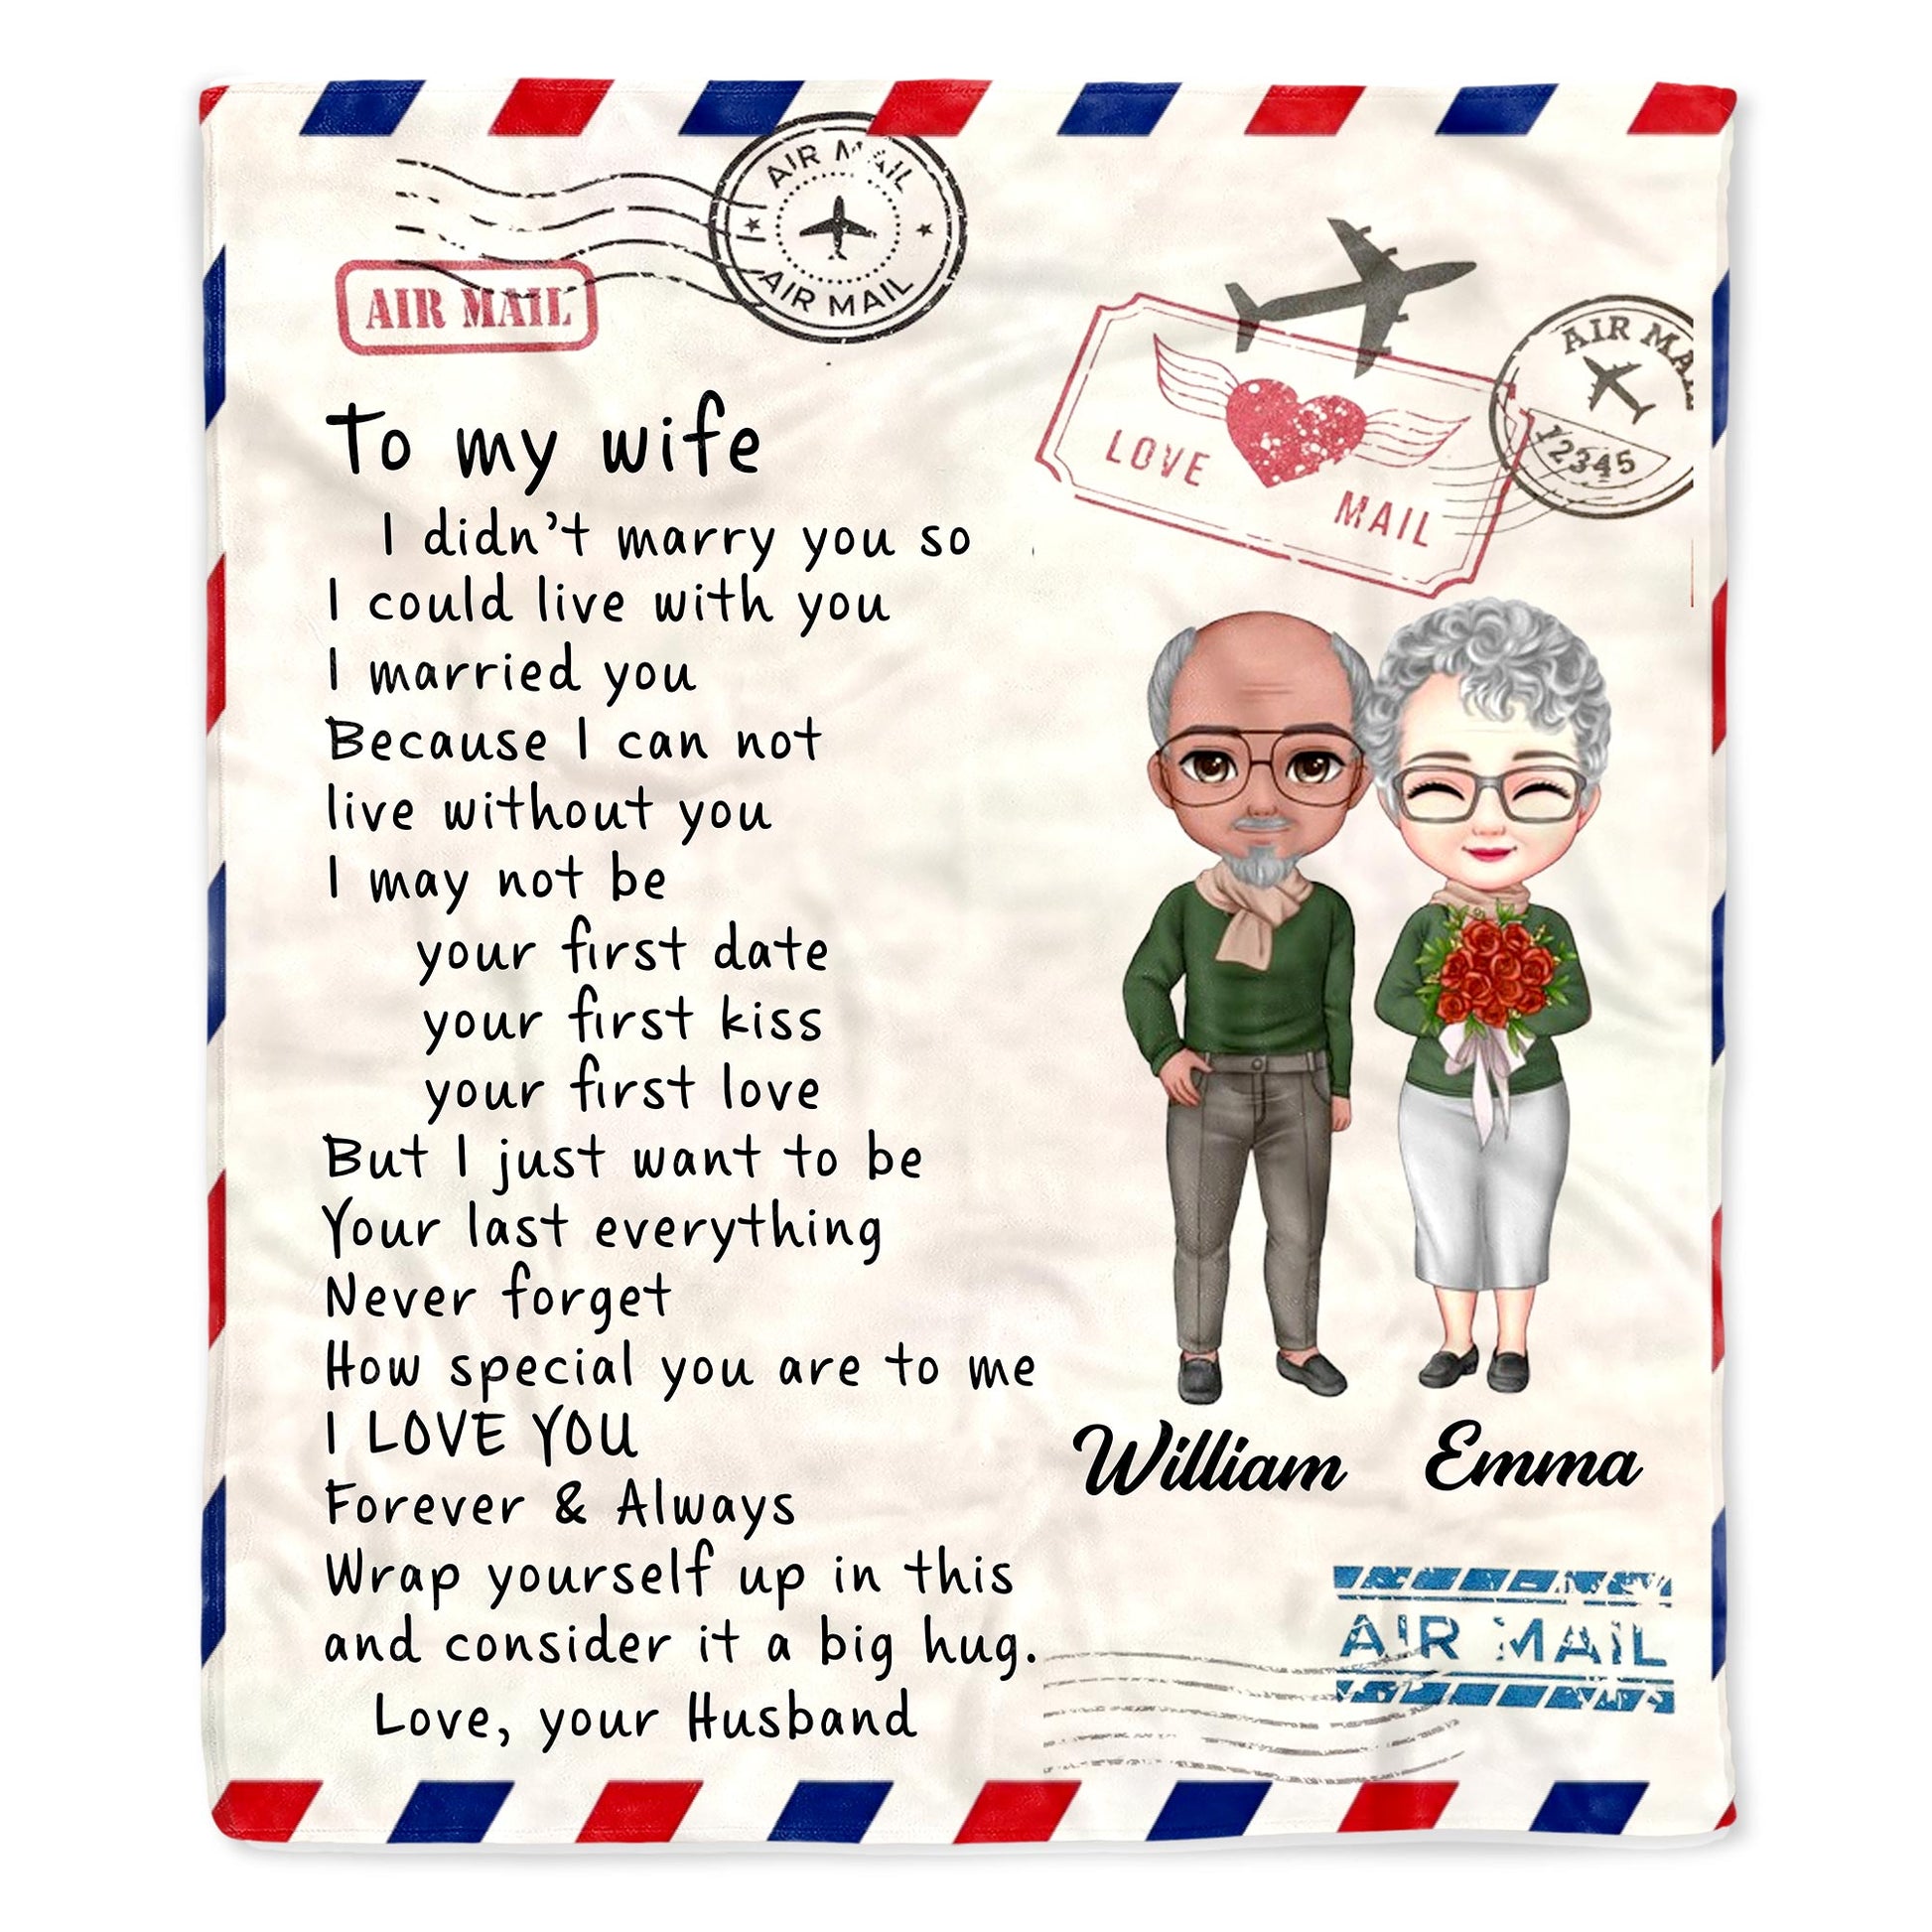 AIR MAIL
AIR MAIL
AIR MAIL
LOVE
MAIL
AIR MAIL
12345
To my wife
I didn't marry you so
I could live with you
I married you
Because I can not
live without you
I may not be
your first date
your first kiss
your first love
But I just want to be
Your last everything
Never forget
How special you are to me
I LOVE YOU
Forever & Always
Wrap yourself up in this
and consider it a big hug.
Love, your Husband
William Emma
AIR MAIL